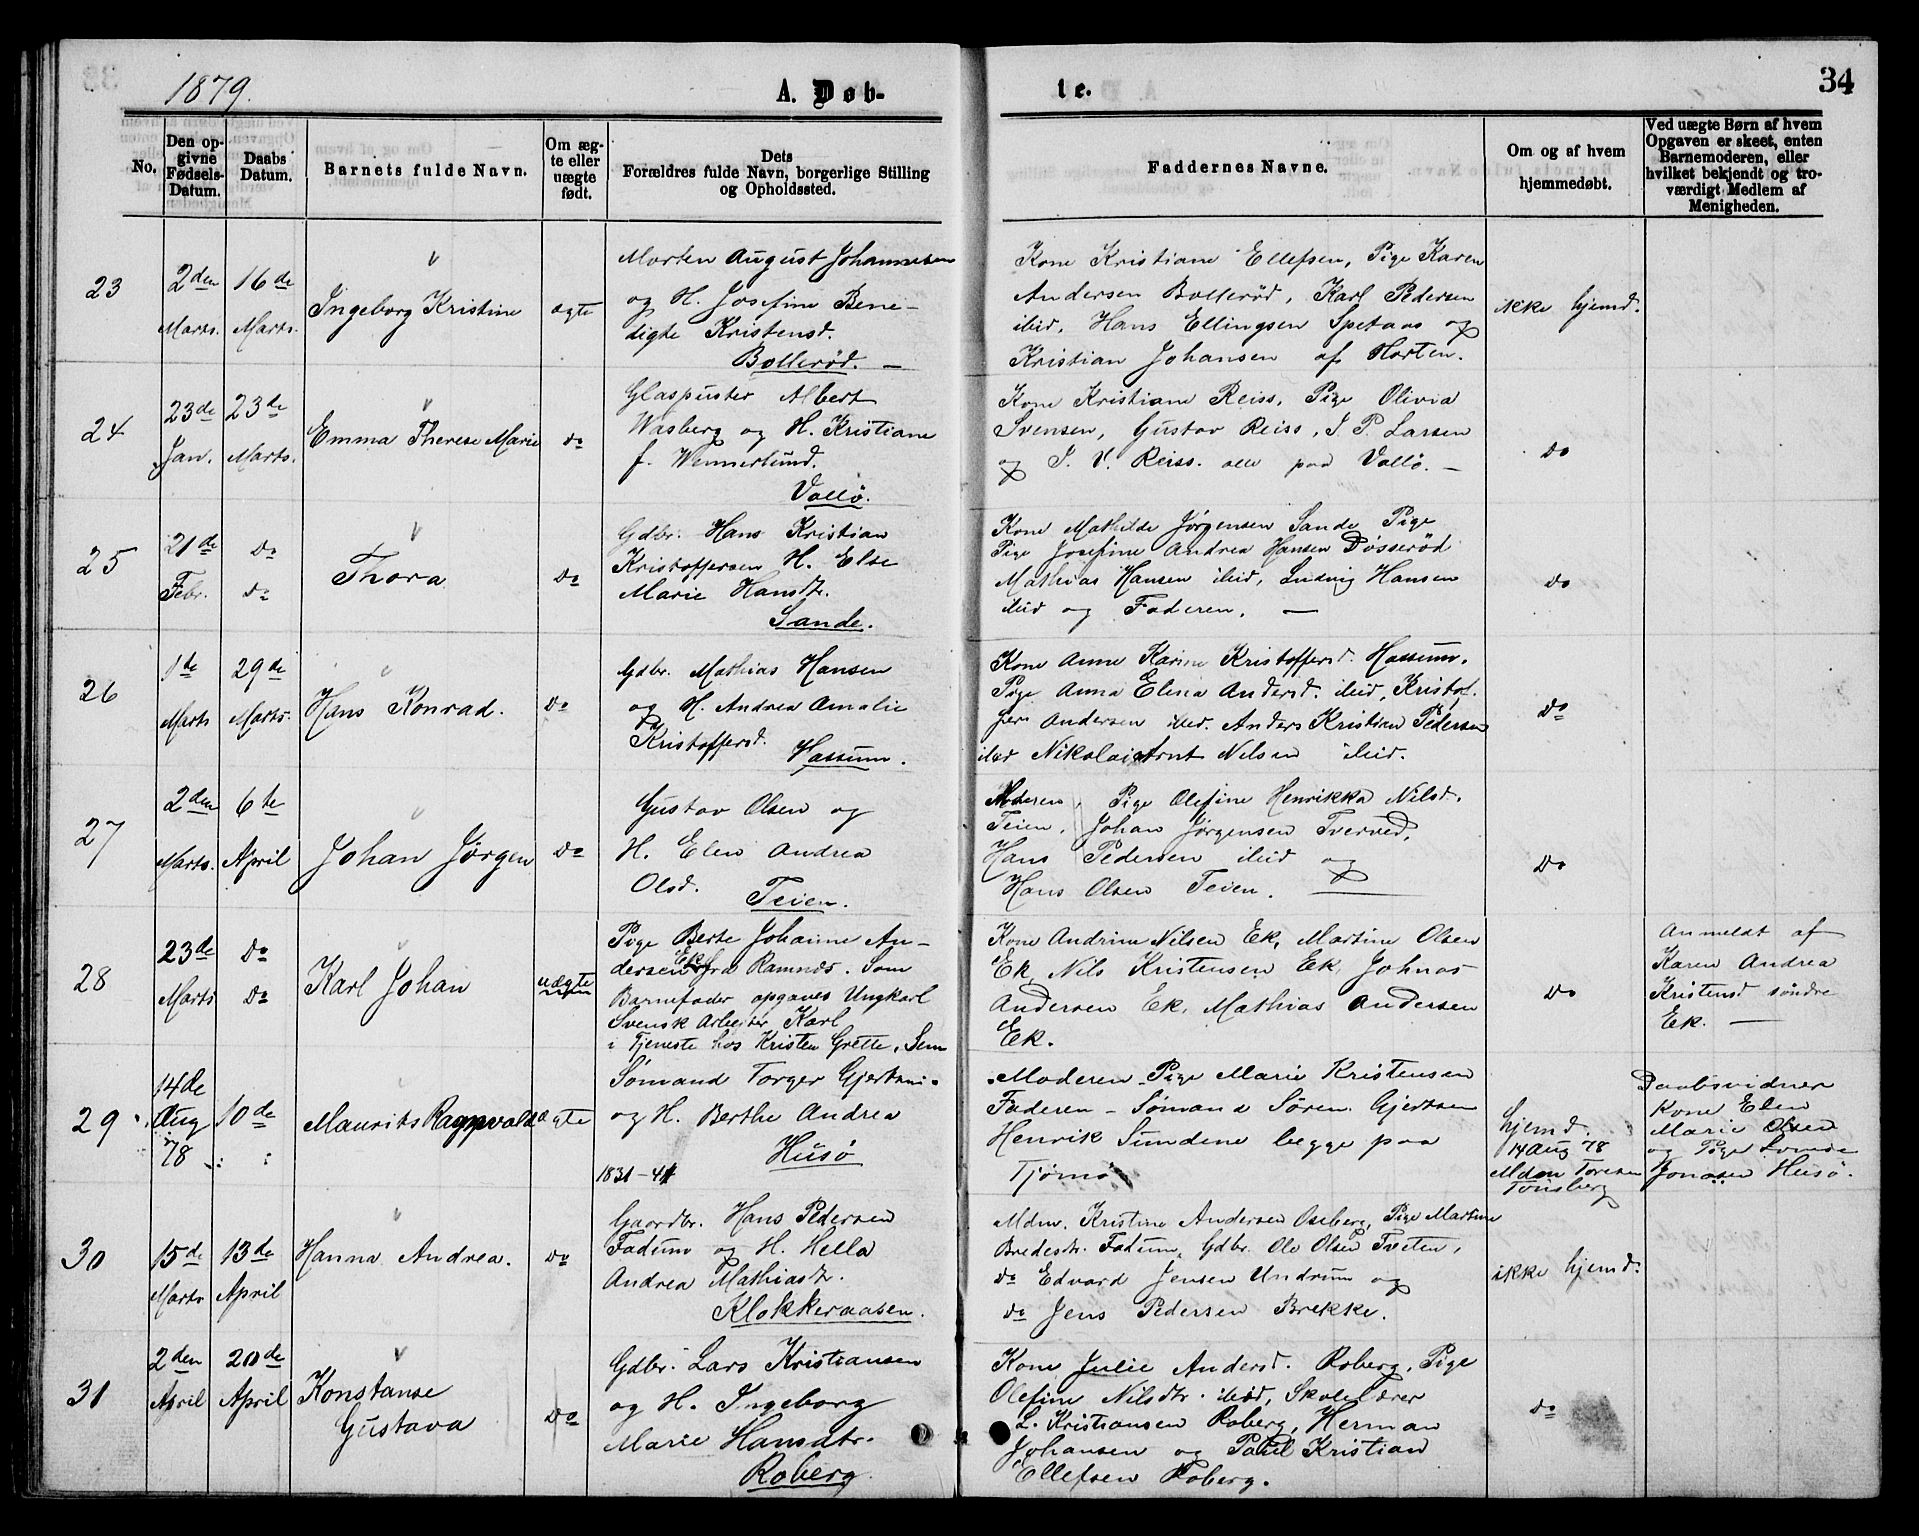 1879.
A. Døb-
te.
34
No.
Den op-
givne
Fødsels-
Datum.
Daabs
Datum.
Barnets fulde Navn.
Om æg-
te eller
uægte
født.
Dets
Forældres fulde Navn, borgerlige Stilling
og Opholdssted.
Faddernes Navne.
Om og af hvem
hjemmedøbt.
Ved uægte Børn af hvem
Opgaven er skeet, enten
Barnemoderen, eller
hvilket bekjendt og tro-
værdigt Medlem af
Menigheden.
23
2den
Marts.
16de
Marts.
Ingeborg Kristine
ægte
Morten August Johannesen
og H. Josefine Bene-
digte Kristensd.
Bollerød. —
Kone Kristiane Ellefsen, Pige Karen
Andersen Bollerød, Karl Pedersen
ibid, Hans Ellingsen Spetaas og
Kristian Johansen af Horten.
ikke hjemd.
24
23de
Jan.
23de
Marts.
Emma Therese Marie
do
Glaspuster Albert
Wasberg og H. Kristiane
f. Wennerlund.
Vallø.
Kone Kristiane Reiss, Pige Olivia
Svensen, Gustav Reiss, I. P. Larsen
og I. V. Reiss. alle paa Vallø. —
do
25
21de
Febr.
do
do
Thora
do
Gdbr. Hans Kristian
Kristoffersen H. Else
Marie Hansdtr.
Sande.
Kone Mathilde Jørgensen Sande Pige
Pige Josefine Andrea Hansen Døsserød
Mathias Hansen ibid, Ludvig Hansen
ibid og Faderen. —
do
26
1te
Marts
29de
Marts.
Hans Konrad.
do
Gdbr. Mathias Hansen
og H. Andrea Amalie
Kristoffersd.
Hassum.
Kone Anne Karine Kristoffersd. Hassum.
Pige Anna Elina Andersd. ibid, Kristof-
fer Andersen ibid. Anders Kristian Pedersen
ibid Nikolai Arnt Nilsen ibid.
do
27
2den
Marts.
6te
April
Johan Jørgen
do
Gustav Olsen og
H. Elen Andrea
Olsd.
Teien.
Moderen, Pige Olefine Henrikka Nilsd.
Teien, Johan Jørgensen Tverved,
Hans Pedersen ibid og
Hans Olsen Teien. —
do
28
23de
Marts
do
do
Karl Johan
uægte
Pige Berte Johanne An-
dersen Ek fra Ramnæs. Som
Barnefader opgaves Ungkarl
Svensk Arbejder Karl
i Tjeneste hos Kristen Grette, Sem
Kone Andrine Nilsen Ek, Martine Olsen
Ek, Nils Kristensen Ek, Johnas
Andersen Ek, Mathias Andersen
Ek.
do
Anmeldt af
Karen Andrea
Kristensd søndre
Ek. —
29
14de
Aug
78
10de
Maurits Ragnvald
ægte
Sømand Torger Gjertsen
og H. Berthe Andrea
Husø
1831-41
Moderen, Pige Marie Kristensen
Faderen - Sømand Søren Gjertsen
Henrik Sundene begge paa
Tjømø
hjemd.
14 Aug 78
Mdm Toresen
Tønsberg
Daabsvidner
Kone Elen
Marie Olsen
og Pige Lovise
Jonasen Husø.
30
15de
Marts
13de
April
Hanna Andrea.
do
Gaardbr. Hans Pedersen
Fadum og H. Hella
Andrea Mathiasdtr.
Klokkeraasen.
Mdm. Kristine Andersen Oseberg, Pige Martine
Bredesdtr. Fadum, Gdbr. Ole Olsen Tveten,
do Edvard Jensen Undrum og
do Jens Pedersen Brekke.
ikke hjemd.
31
2den
April
20de
April
Konstanse
Gustava
do
Gdbr. Lars Kristiansen
og H. Ingeborg
Marie Hansdtr.
Roberg
Kone Julie Andersd. Roberg, Pige
Olefine Nilsdtr. ibid, Skolelærer
L. Kristiansen Roberg, Herman
Johansen og Paul Kristian
Ellefsen Roberg.
do